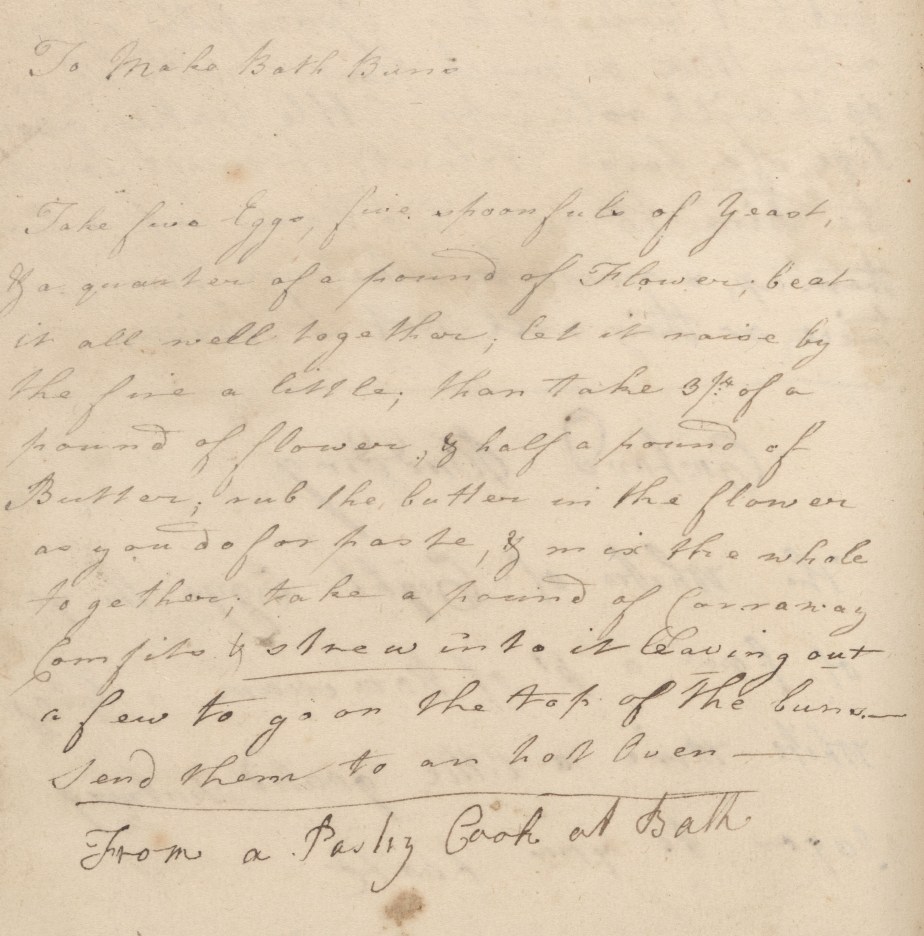 To Make Bath Buns
Take five Eggs, five spoonfuls of Yeast,
& a quarter of a pound of Flower; beat
it all well together; let it raise by
the fire a little; than take 3/4 of a
pound of flower, & half a pound of
Butter; rub the butter in the flower
as you do for paste, & mix the whole
together; take a pound of Carraway
Comfits & strew into it leaving out
a few to go on the top of the buns.—
send them to an hot Oven —
From a Pastry Cook at Bath